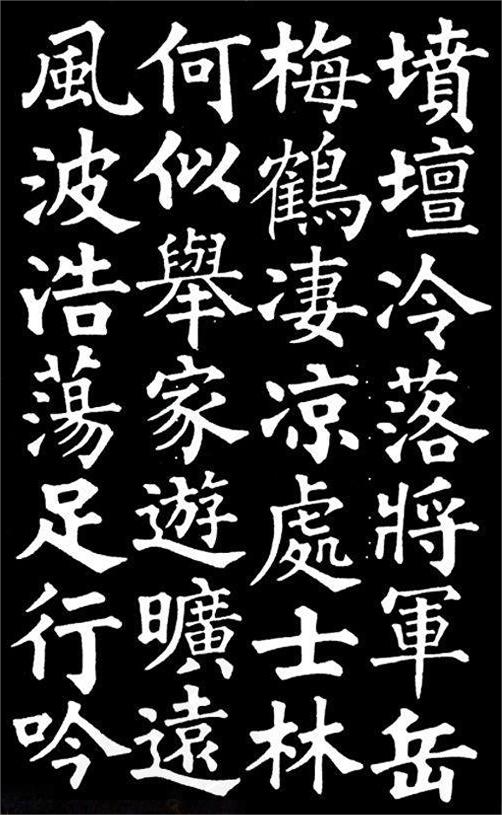 墳壇冷落將軍岳
梅鶴凄凉處士林
何似舉家遊曠遠
風波浩蕩足行吟